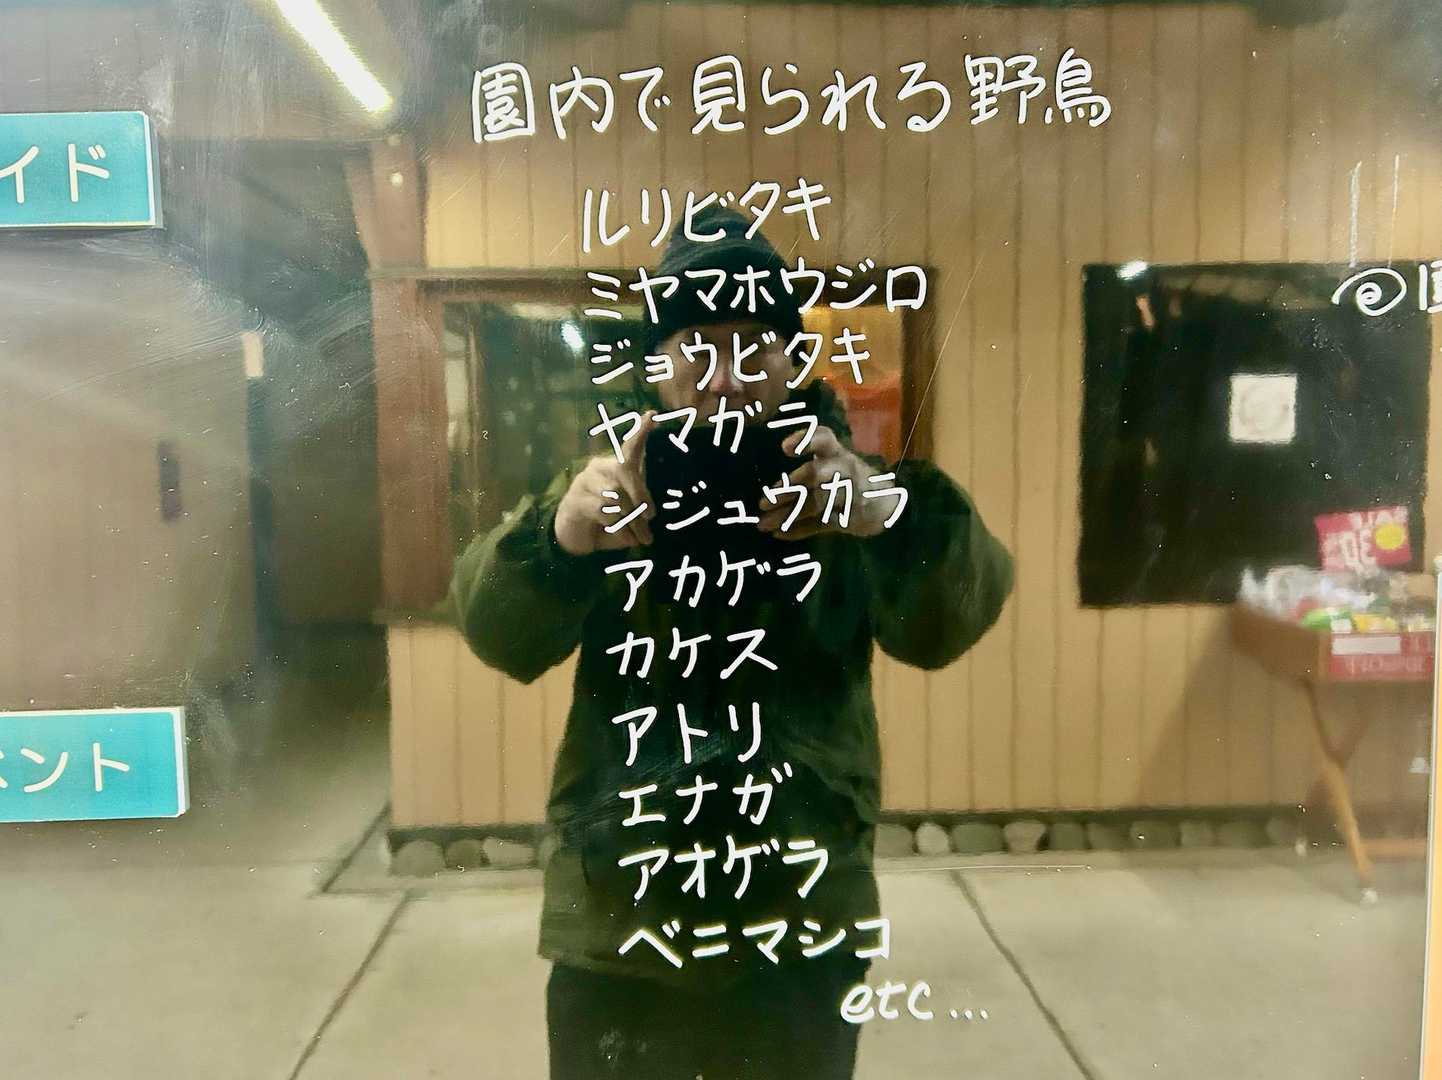 園内で見られる野鳥
イド
ルリビタキ
ミヤマホウジロ
ジョウビタキ
ヤマガラ
シジュウカラ
アカゲラ
カケス
アトリ
エナガ
アオゲラ
ベニマシコ
etc...
ベント